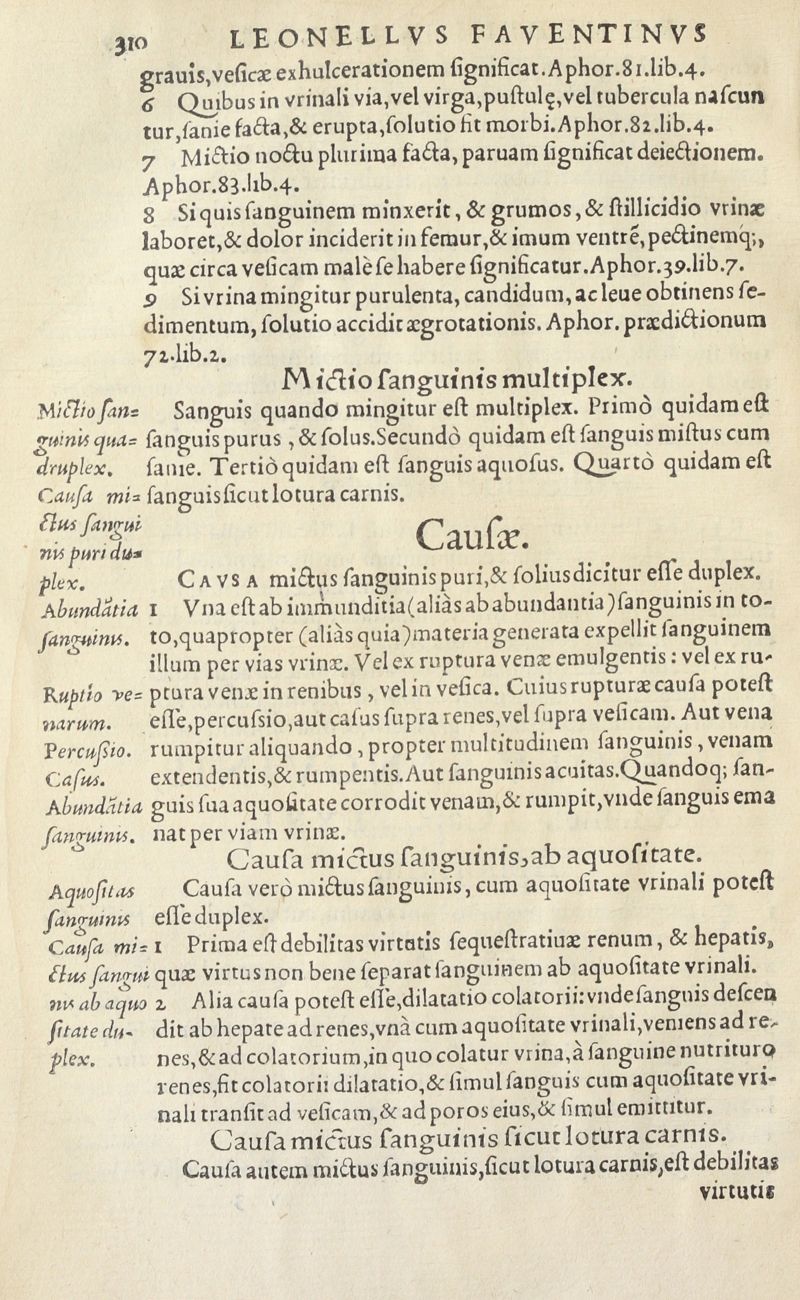 310 LEONELLVS FAVENTINVS
grauis,veſicæ exhulcerationem ſignificat.Aphor.81.lib.4.
6 Quibus in vrinali via,vel virga,puſtulę,vel tubercula naſcun
tur,ſanie facta,& erupta,ſolutio fit morbi.Aphor.82.lib.4.
7 Mictio noctu plurima facta, paruam ſignificat deiectionem.
Aphor.83.lib.4.
8 Si quis ſanguinem minxerit, & grumos, & ſtillicidio vrinæ
laboret,& dolor inciderit in femur,& imum ventrẽ, pectinemq́;,
quæ circa veſicam malè ſe habere ſignificatur.Aphor.39.lib.7.
9 Si vrina mingitur purulenta, candidum, ac leue obtinens ſe-
dimentum, ſolutio accidit ægrotationis. Aphor. prædictionum
72.lib.2.
Mictio ſanguinis multiplex.
Sanguis quando mingitur eſt multiplex. Primò quidam eſt
ſanguis purus, & ſolus.Secundò quidam eſt ſanguis miſtus cum
ſanie. Tertiò quidam eſt ſanguis aquoſus. Quartò quidam eſt
ſanguis ſicut lotura carnis.
Mictio ſan=
guinis qua=
druplex.
Cauſa mi=
ctus ſangui
nis puri du=
plex.
Cauſæ.
CAVSA mictus ſanguinis puri,& ſolius dicitur eſſe duplex.
1 Vna eſt ab immunditia(aliàs ab abundantia)ſanguinis in to-
to,quapropter (aliàs quia)materia generata expellit ſanguinem
illum per vias vrinæ. Vel ex ruptura venæ emulgentis : vel ex ru-
ptura venæ in renibus, vel in veſica. Cuius rupturæ cauſa poteſt
eſſe,percuſsio,aut caſus ſupra renes,vel ſupra veſicam. Aut vena
rumpitur aliquando, propter multitudinem ſanguinis, venam
extendentis,& rumpentis.Aut ſanguinis acuitas.Quandoq; ſan-
guis ſua aquoſitate corrodit venam,& rumpit,vnde ſanguis ema
nat per viam vrinæ.
Abundãtia
ſanguinis.
Ruptio ve=
narum.
Percuſsio.
Caſus.
Abundãtia
ſanguinis.
Cauſa mictus ſanguinis,ab aquoſitate.
Cauſa verò mictus ſanguinis, cum aquoſitate vrinali poteſt
eſſe duplex.
1 Prima eſt debilitas virtutis ſequeſtratiuæ renum, & hepatis,
quæ virtus non bene ſeparat ſanguinem ab aquoſitate vrinali.
2 Alia cauſa poteſt eſſe,dilatatio colatorii:vnde ſanguis deſcen
dit ab hepate ad renes,vnà cum aquoſitate vrinali,veniens ad re-
nes,& ad colatorium,in quo colatur vrina,à ſanguine nutrituro
renes,fit colatorii dilatatio,& ſimul ſanguis cum aquoſitate vri-
nali tranſit ad veſicam,& ad poros eius,& ſimul emittitur.
Aquoſitas
ſanguinis
Cauſa mi=
ctus ſangui
nis ab aquo
ſitate du-
plex.
Cauſa mictus ſanguinis ſicut lotura carnis.
Cauſa autem mictus ſanguinis,ſicut lotura carnis,eſt debilitas
virtutis